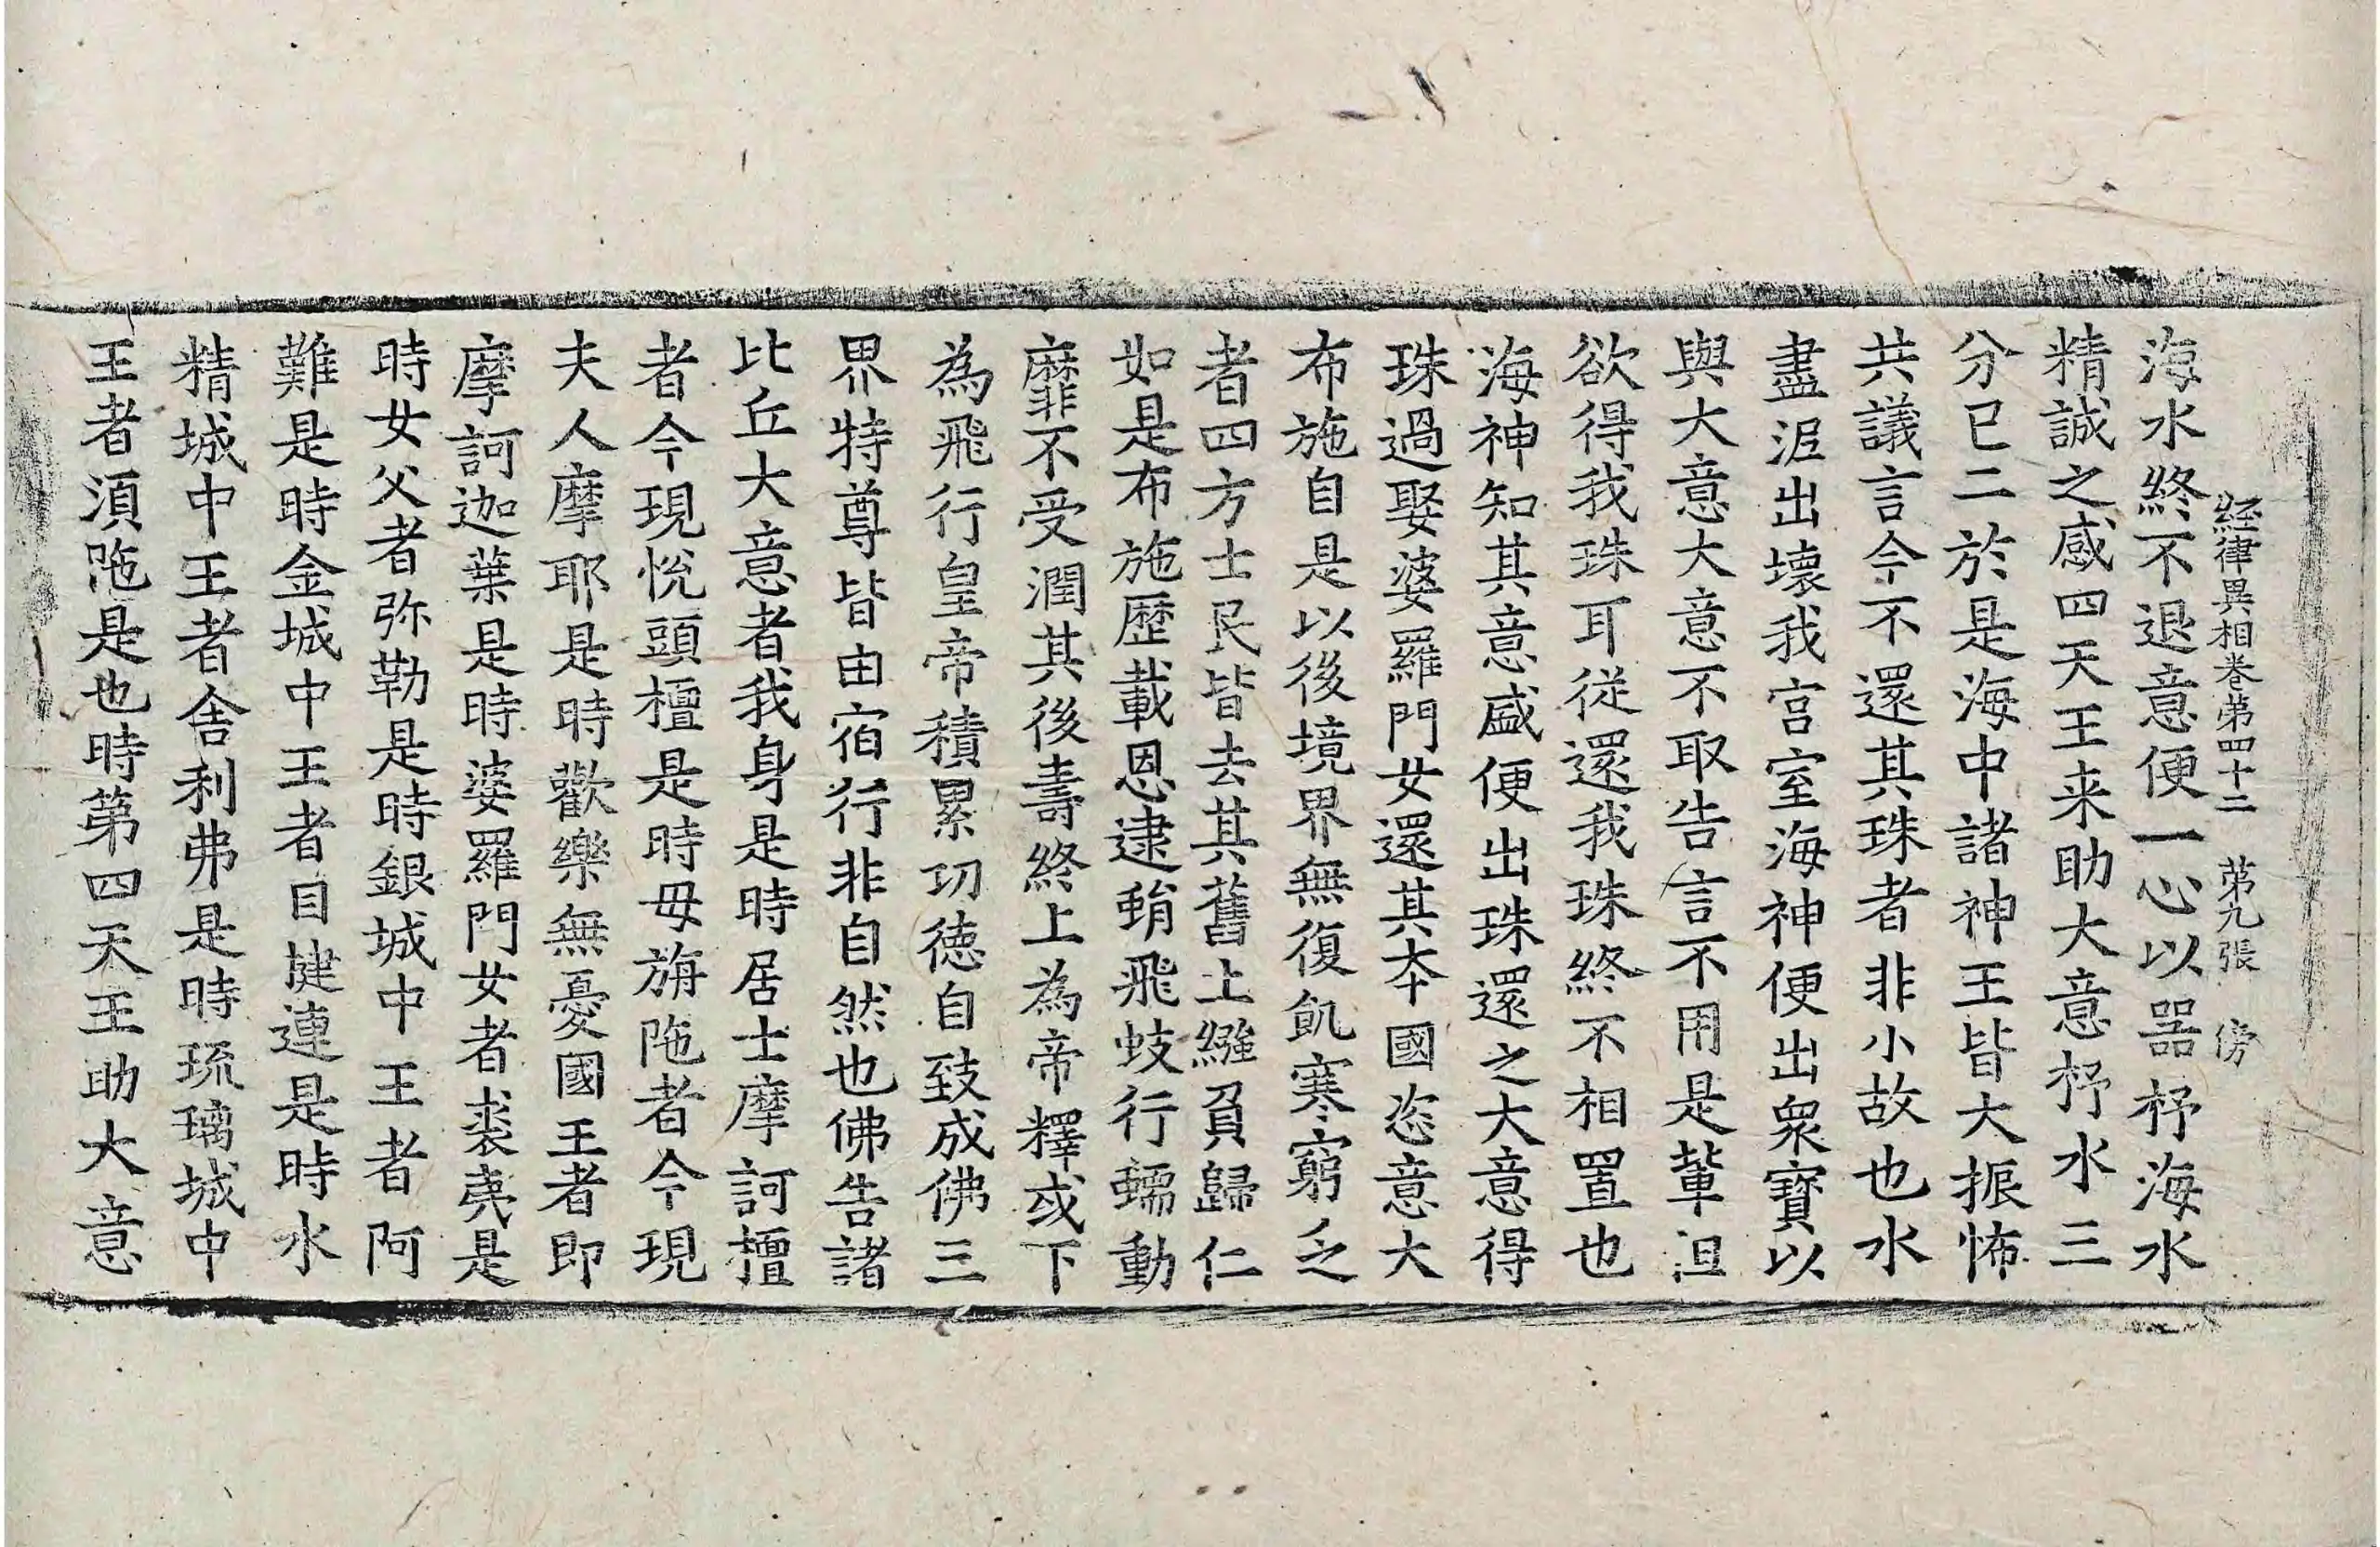 経律異相卷第四十二 第九張 傍
海水終不退意便一心以器杼海水
精誠之感四天王来助大意杼水三
分已二於是海中諸神王皆大振怖
共議言今不還其珠者非小故也水
盡泥出壞我宮室海神便出衆寶以
與大意大意不取告言不用是輩沮
欲得我珠耳從還我珠終不相置也
海神知其意盛便出珠還之大意得
珠過娶婆羅門女還其夲國恣意大
布施自是以後境界無復飢寒窮乏
者四方士民皆去其舊土繦負歸仁
如是布施歷載恩逮蜎飛蚑行蠕動
靡不受潤其後壽終上為帝釋或下
為飛行皇帝積累功德自致成佛三
界特尊皆由宿行非自然也佛告諸
比丘大意者我身是時居士摩訶檀
者今現恱頭檀是時母旃陁者今現
夫人摩耶是時歡樂無憂國王者即
摩訶迦葉是時婆羅門女者裘夷是
時女父者弥勒是時銀城中王者阿
難是時金城中王者目揵連是時水
精城中王者舍利弗是時琉璃城中
王者湏陁是也時第四天王助大意